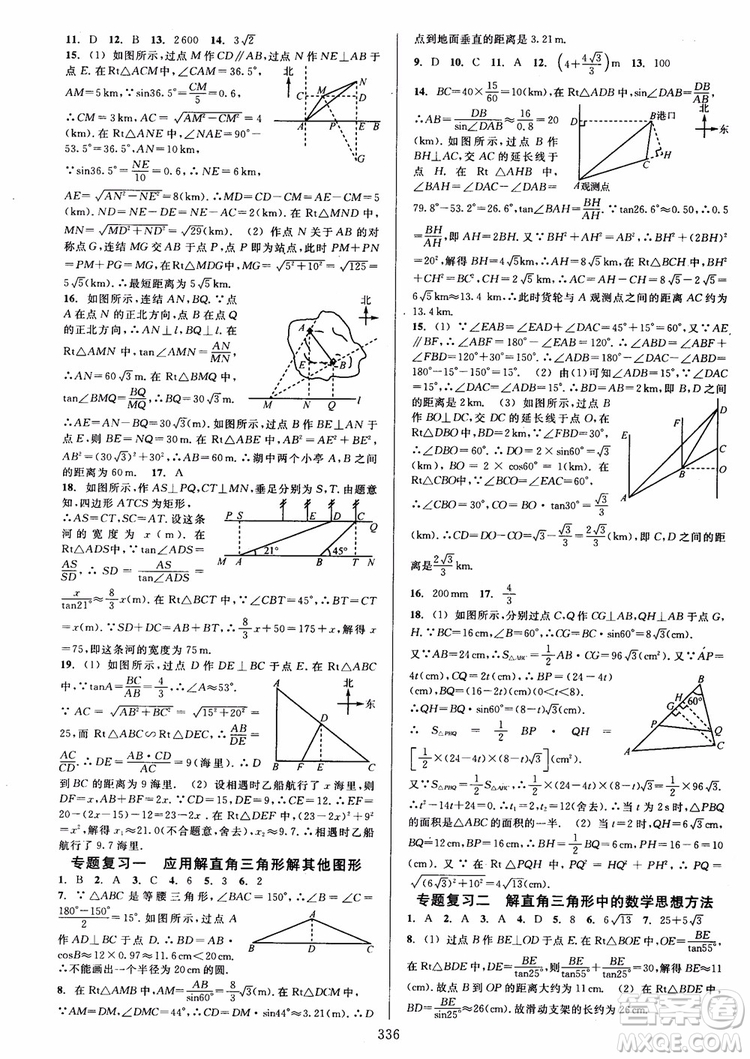 11. D 12. B 13. 2600 14. 3√2
15. (1) 如图所示,过点 M 作 CD∥AB,过点 N 作 NE⊥AB 于
点 E. 在 Rt△ACM 中,∠CAM=36.5°,
AM=5 km,∵sin36.5°=CM/5=0.6,
∴CM=3 km,AC=√(AM²−CM²)=
4(km). 在 Rt△ANE 中,∠NAE=90°−
53.5°=36.5°,AN=10 km,
∵sin36.5°=NE/10=0.6,∴NE=6 km,
AE=√(AN²−NE²)=8(km). ∴MD=CD−CM=AE−CM=5
(km). ND=NE−DE=NE−AC=2(km). 在 Rt△MND 中,
MN=√(MD²+ND²)=√29(km). (2) 作点 N 关于 AB 的对
称点 G,连结 MG 交 AB 于点 P. 点 P 即为站点,此时 PM+PN
=PM+PG=MG,在 Rt△MDG 中,MG=√(5²+10²)=√125=
5√5(km). ∴最短距离为 5√5 km.
16. 如图所示,连结 AN,BQ. ∵点
A 在点 N 的正北方向,点 B 在点 Q
的正北方向,∴AN⊥l,BQ⊥l. 在
Rt△AMN 中,tan∠AMN=AN/MN,
∴AN=60√3 m. 在 Rt△BMQ 中,
tan∠BMQ=BQ/MQ,∴BQ=30√3 m.
∴AE=AN−BQ=30√3 m. 过点 B 作 BE⊥AN 于
点 E,则 BE=NQ=30 m. 在 Rt△ABE 中,AB²=AE²+BE²,
AB²=(30√3)²+30²,∴AB=60 m. ∴湖中两个小亭 A,B 之间
的距离为 60 m. 17. A
18. 如图所示,作 AS⊥PQ,CT⊥MN,垂足分别为 S,T. 由题意
知,四边形 ATCS 为矩形,
∴AS=CT,SC=AT. 设这条
河的宽度为 x(m). 在
Rt△ADS 中,∵tan∠ADS=
AS/SD,∴SD=AS/tan∠ADS=
x/tan21°≈8/3x(m). 在 Rt△BCT 中,∵∠CBT=45°,
∴BT=CT=x(m). ∵SD+DC=AB+BT,∴8/3x+50=x+
75,即这条河的宽度为 15 m.
19. (1) 过点 D 作 DE⊥AB 于点 E. 在 Rt△ABC
中,∵tanA=BC/AB=4/3,∴∠A≈53°.
∵AC=√(AB²+BC²)=√(15²+20²)=
25,而 Rt△ABC∽Rt△DEC,∴AB/DE=
AC/CD. ∴DE=AB·CD/AC=9. ∴点 D
到 BC 的距离为 9 海里. (2) 设相遇时乙船航行了 x 海里,则
DF=x,在 Rt△CDE 中,CD=15,DE=9,∴CE=12. ∴EF=
20−(2x−15)−12=23−2x. 在 Rt△DEF 中,x²=9²+(23−
2x)²,解得 x₁≈21.0(不合题意,舍去),x₂≈9.7. ∴相遇时乙船航
行了 9.7 海里.
专题复习一 应用解直角三角形解其他图形
1. B 2. A 3. C 4. 6 5. 3 6. 2
7. ∵△ABC 是等腰三角形,∴∠B=
(180°−150°)/2=15°,如图所示,过点 A
作 AD⊥BC 于点 D. ∴BD=AB·
cosB≈12×0.97≈11.64(cm). ∴BC≈11.64×2≈23(cm).
∴不能画出一个半径为 20 cm 的圆.
8. 在 Rt△AMB 中,AM=AB/sin60°=8√3/3. 在 Rt△DCM 中,
点到地面垂直的距离是 3.21 m.
9. D 10. C 11. A 12. (4+4√3/3)m 13. 100
14. BC=40×15/60=10(km). 在 Rt△ADB 中,sin∠DAB=DB/AB,
∴AB=DB/sin∠DAB≈16/0.8=20(km). 过点 B 作
BH⊥AC,交 AC 的延长线于点
H. 在 Rt△AHB 中,
∠BAH=∠DAC−∠DAB=
79.8°−53.2°=26.6°. tan∠BAH=BH/AH. ∵tan26.6°≈0.50,∴0.5=
BH/AH. ∴AH=2BH. ∵BH²+AH²=AB²,∴BH²+(2BH)²
=20²,解得 BH=4√5(km),AH=8√5(km). 在 Rt△BCH 中,
CH=√(BC²−BH²)=2√5(km). ∴AC=AH−CH=8√5−2√5=
6√5(km)≈13.4(km). ∴此时货轮与 A 观测点之间的距离约为
13.4 km.
15. (1) ∵∠EAB=∠EAD+∠DAC=45°+15°=60°. 又∵AE
∥BF,∴∠ABF=180°−∠EAB=120°. ∴∠ABD=∠ABF+
∠FBD=120°+30°=150°. ∴∠ADB=180°−∠DAC−∠ABD=
180°−150°−15°=15°. (2) 由(1)可知∠ADB=15°,∵∠DAC
=15°,∴∠DAC=∠ADB. ∴DB=AB=2 km,即 B,D 之间的
距离是 2 km. (3) 如图所示,过点 B
作 BO⊥DC,交 DC 的延长线于点 O,在
Rt△DBO 中,∵∠FBD=30°,∴∠DBO
=60°. ∵BD=2,∴DO=2×sin60°=√3
(km),BO=2×cos60°=1(km). 在
Rt△CBO 中,∵∠EAB=60°,
∴∠CBO=30°,CO=BO·tan30°=√3/3
(km). ∴CD=DO−CO=√3−√3/3=2√3/3(km),即 CD 之间的距
离是 2√3/3 km.
16. 200 mm 17. 4/3
18. (1) 如图所示,分别过点 C,Q 作 CG⊥AB,QH⊥AB 于点 G,
H. ∵BC=16 cm,∠B=60°,∴CG=BC·sin60°=8√3(cm).
又∵AB=24 cm,∴S△ABC=1/2×24×8√3=96√3(cm²). 又∵AP=
4t(cm),CQ=2t(cm),∴BP=24−4t(cm),BQ=16−2t(cm).
∴QH=BQ·sin60°=√3/2(16−2t)(cm).
∴S△PBQ=1/2×BP×QH=
[1/2×(24−4t)×√3/2(16−2t)](cm²).
又∵S△PBQ=1/2S△ABC,∴1/2×(24−4t)×√3/2(16−2t)=96√3/2.
∴t²−14t+24=0. ∴t₁=2,t₂=12(舍去). ∴当 t=2 时,△PBQ
的面积是△ABC 的面积的一半. (2) 由(1)得,当 t=2 时,
S△PBQ=48√3(cm²),BQ=12(cm),BP=16(cm),∴PQ=
√((6√3)²+10²)=4√13(cm).
专题复习二 解直角三角形中的数学思想方法
1. A 2. A 3. A 4. D 5. 8 6. √13 7. 25+5√3
8. (1) 过点 B 作 BE⊥OD 于点 E. 在 Rt△BOE 中,OE=BE/tan55°.
在 Rt△BDE 中,DE=BE/tan25°. ∴BE/tan55°+BE/tan25°=30,解得 BE≈11(cm).
∴点 B 到直线的距离大约为 11 cm. (2) 在 Rt△BDE 中,
BD=BE/sin25°≈26(cm). 故滑动支架的长约为 26 cm.
336
作业精灵
MQKGE.COM